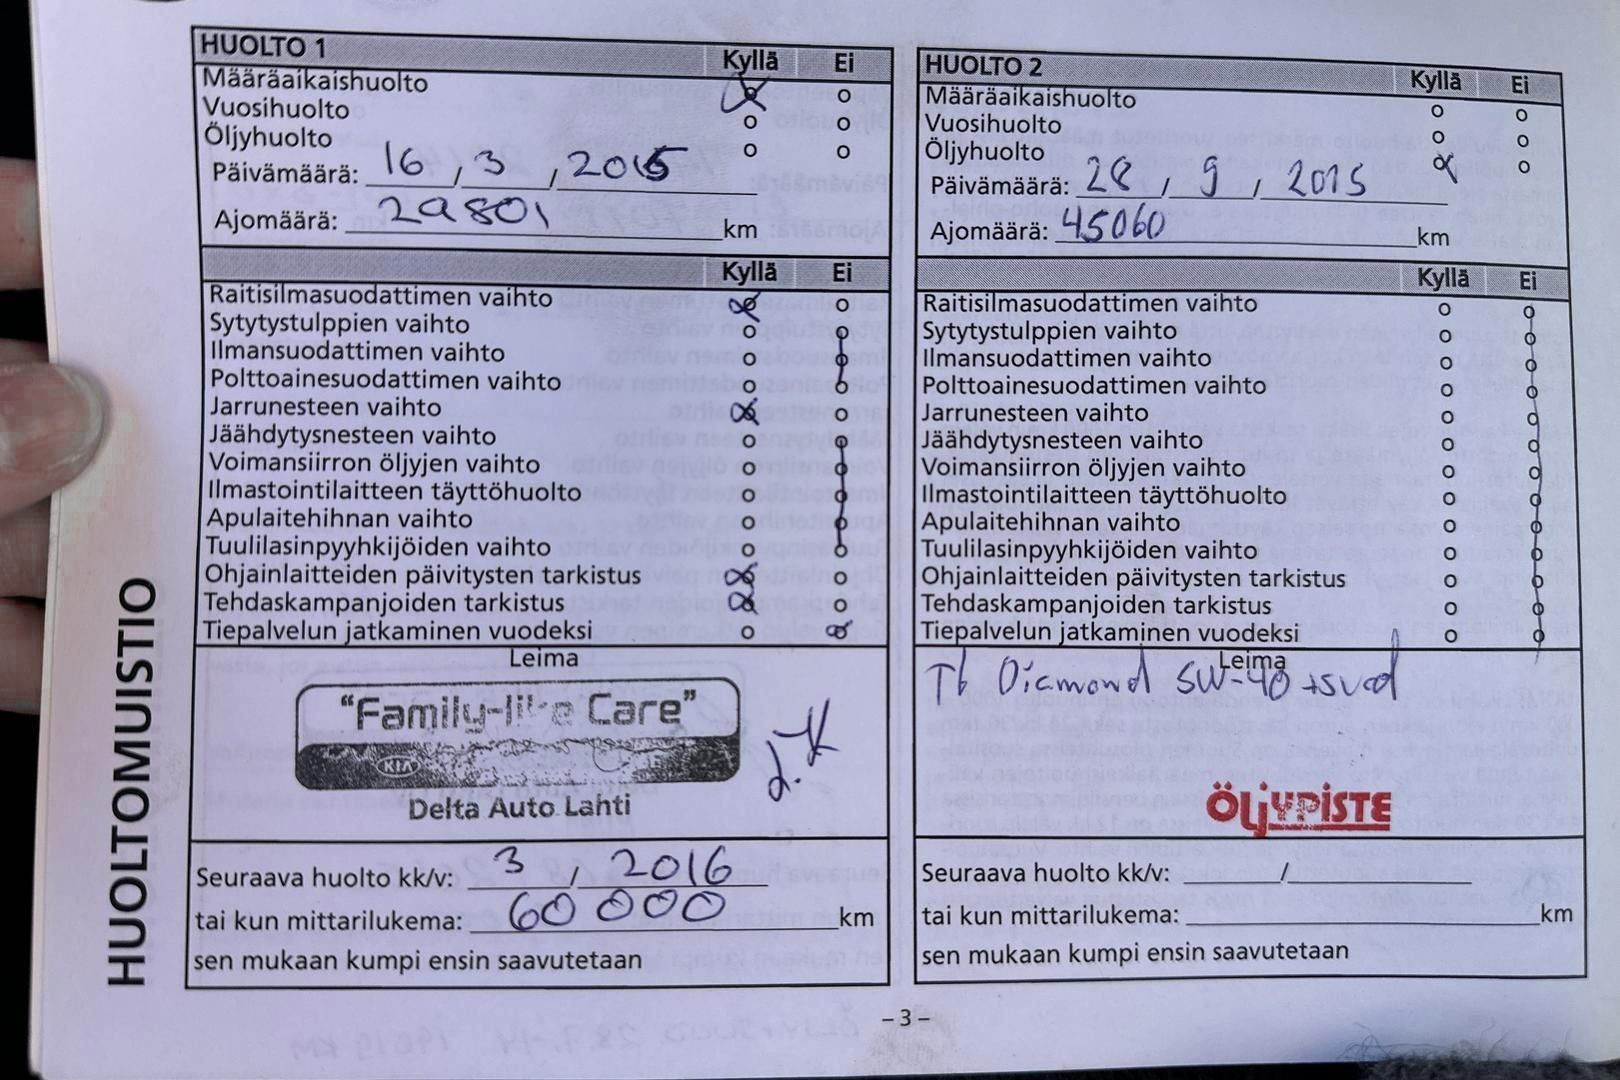 HUOLTOMUISTIO
HUOLTO 1 Kyllä Ei
Määräaikaishuolto
Vuosihuolto
Öljyhuolto
Päivämäärä: 16 / 3 / 2015
Ajomäärä: 29801 km
Kyllä Ei
Raitisilmasuodattimen vaihto
Sytytystulppien vaihto
Ilmansuodattimen vaihto
Polttoainesuodattimen vaihto
Jarrunesteen vaihto
Jäähdytysnesteen vaihto
Voimansiirron öljyjen vaihto
Ilmastointilaitteen täyttöhuolto
Apulaitehihnan vaihto
Tuulilasinpyyhkijöiden vaihto
Ohjainlaitteiden päivitysten tarkistus
Tehdaskampanjoiden tarkistus
Tiepalvelun jatkaminen vuodeksi
Leima
"Family-like Care"
KIA
Delta Auto Lahti
Seuraava huolto kk/v: 3 / 2016
tai kun mittarilukema: 60 000 km
sen mukaan kumpi ensin saavutetaan
HUOLTO 2 Kyllä Ei
Määräaikaishuolto
Vuosihuolto
Öljyhuolto
Päivämäärä: 28 / 9 / 2015
Ajomäärä: 45060 km
Kyllä Ei
Raitisilmasuodattimen vaihto
Sytytystulppien vaihto
Ilmansuodattimen vaihto
Polttoainesuodattimen vaihto
Jarrunesteen vaihto
Jäähdytysnesteen vaihto
Voimansiirron öljyjen vaihto
Ilmastointilaitteen täyttöhuolto
Apulaitehihnan vaihto
Tuulilasinpyyhkijöiden vaihto
Ohjainlaitteiden päivitysten tarkistus
Tehdaskampanjoiden tarkistus
Tiepalvelun jatkaminen vuodeksi
Leima
Diamond 5W-40 +suod
ÖLJYPISTE
Seuraava huolto kk/v: /
tai kun mittarilukema: km
sen mukaan kumpi ensin saavutetaan
– 3 –